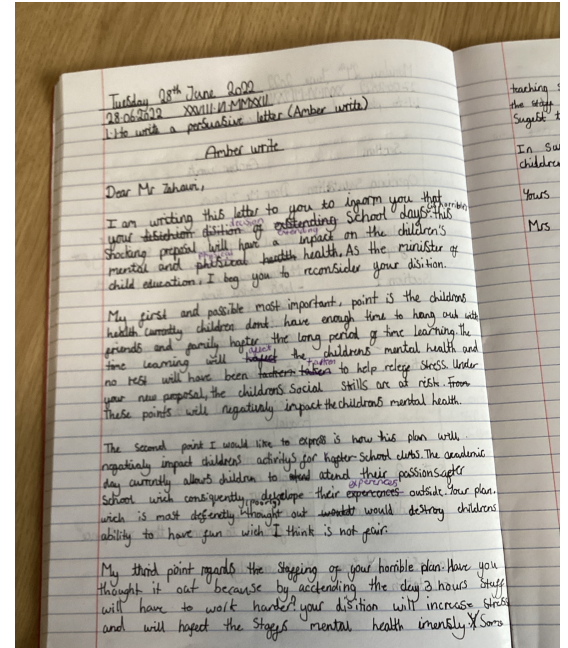 Tuesday 28th June 2022
28.06.2022 XXVIII.VI.MMXXII
L.I.to write a persuasive letter (Amber write)
Amber write
Dear Mr Zahawi,
I am writing this letter to you to inform you that
your disition decision of exstending extending School days. this horrible,
shocking proposal will have a inpact on the children's
mental and phisical physical health. As the minister of
child education, I beg you to reconsider your disition.
My first and possible most important, point is the childrens
health currently children dont have enough time to hang out with
friends and family hafter the long period of time learning. the
time learning will hafect affect the childrens mental health and
no rest will have been taken to help relece stress. Under
your new proposal, the childrens social skills are at risk. From
These points will negatively impact the childrens mental health.
The second point I would like to express is how this plan will
negatialy impact childrens activitys for hafter-school clubs. The academic
day currently allows children to atend their passions after
School wich consiquently, develope their experences experiences outside. Your plan.
wich is most defently (poorly) thought out would destroy childrens
ability to have fun wich I think is not fair.
My third point regards the Staffing of your horrible plan. Have you
thought it out because by acctending the day 3 hours Staff
will have to work harder! your disition will increase stress
and will hafect the Staffs mental health imensly. Some
teaching s
the staff
Sugest t
In Su
childre
Yours
Mrs